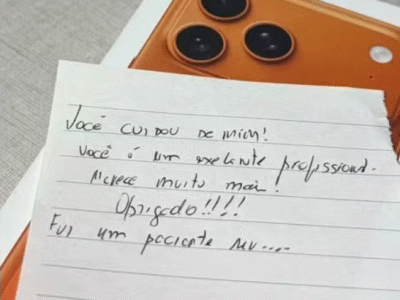 Você cuidou de mim!
Você é um exelente profissional.
Merece muito mais!
Obrigado!!!!
Fui um paciente seu....